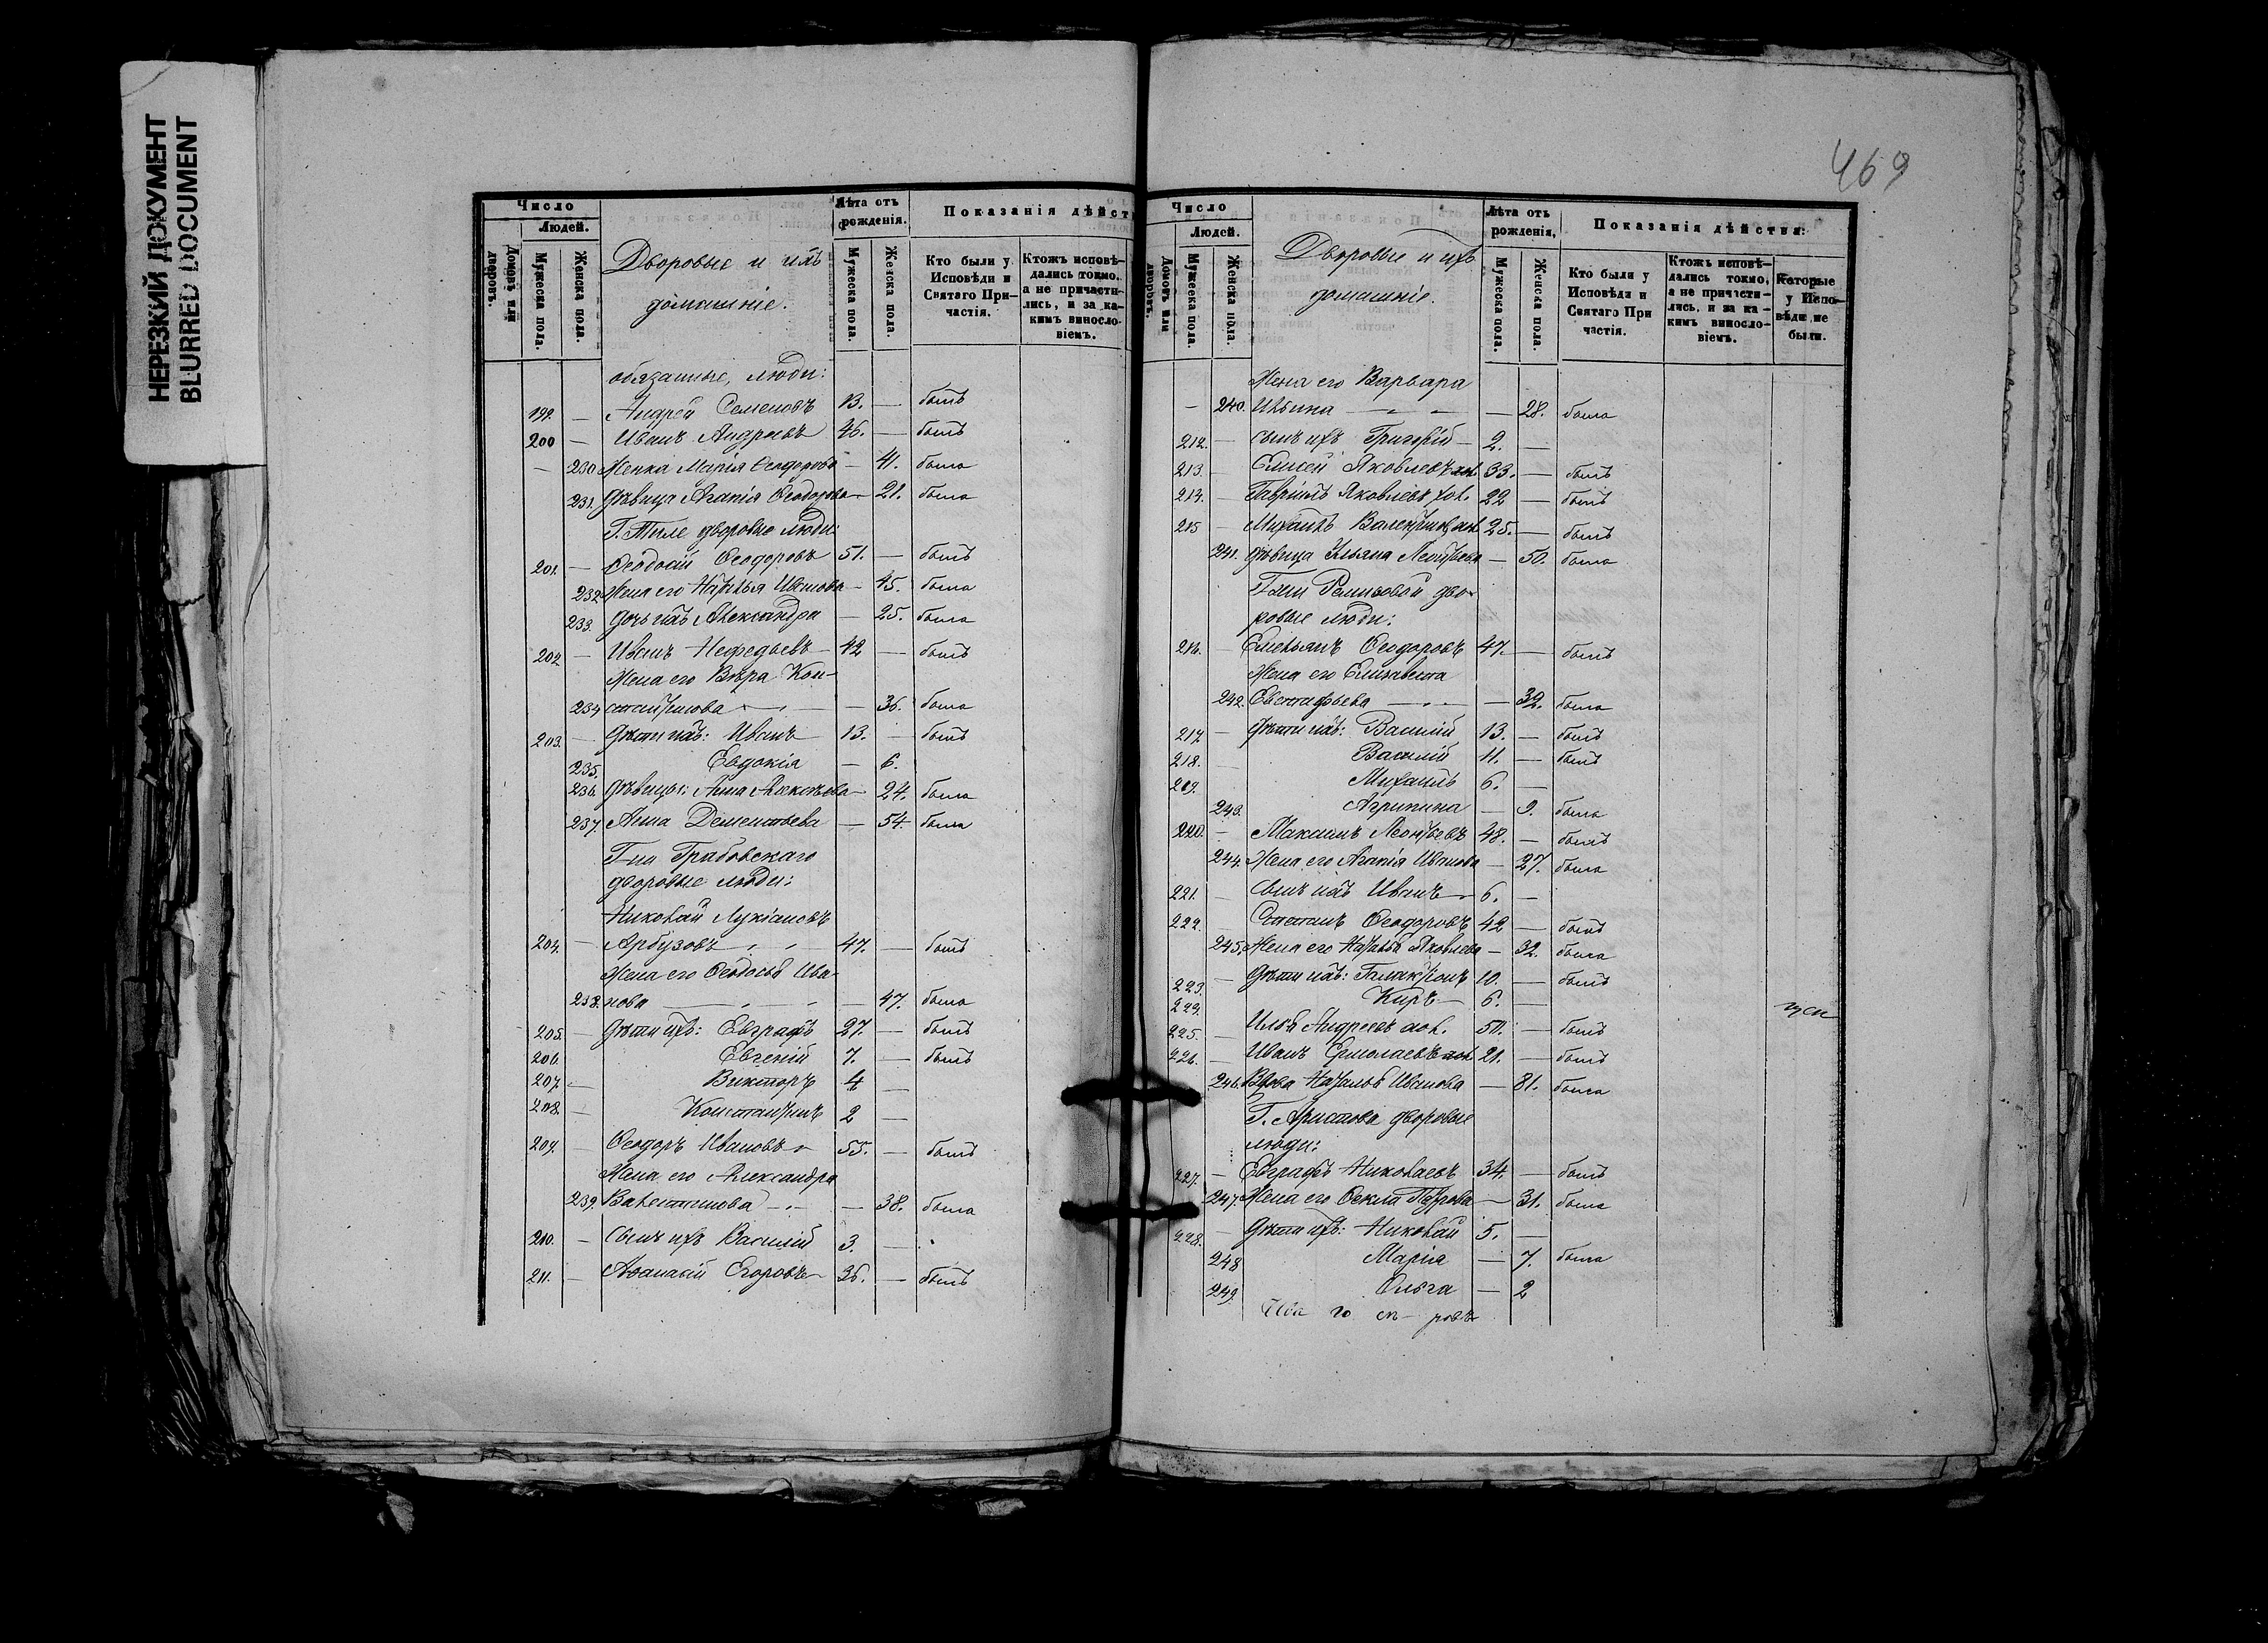 НЕРЕЗКИЙ ДОКУМЕНТ
BLURRED DOCUMENT
Число
Людей.
Домовъ или дворовъ.
Мужеска пола.
Женска пола.
Дворовые и ихъ
домашніе.
Лѣта отъ рожденія.
Мужеска пола.
Женска пола.
Показанія дѣйст
Кто были у Исповѣди и Святаго Причастія.
Ктожъ исповѣдались токмо, а не причастились, и за какимъ винословіемъ.
обязанные, люди:
199. — Андрей Семеновъ 13. — былъ
200 — Иванъ Андреевъ 46. — былъ
— 230 Женка Марія Ѳеодорова — 41. была
231. дѣвица Агапія Ѳеодорова — 21. была
Г. Тиле дворовые люди:
201. — Ѳеодосій Ѳеодоровъ 51. — былъ
232 Жена его Наталья Иванова — 45. была
233. дочь ихъ Александра — 25. была
202 — Иванъ Нефедьевъ — 42 — былъ
Жена его Вѣра Кон-
234 стантинова — — 36. была
203. — Дѣти ихъ: Иванъ 13. — былъ
235. Евдокія — 6.
236. дѣвицы: Анна Алексѣева — 24. была
237. Анна Дементьева — 54. была
Г-на Грабовскаго
дворовые люди:
Николай Лукіановъ
204. — Арбузовъ 47. — былъ
Жена его Ѳеодосья Ива-
238. нова — — 47. была
205. — Дѣти ихъ: Евграфъ 27 — былъ
206. Евгеній 7. — былъ
207. — Викторъ 4 —
208. — Константинъ 2 —
209. — Ѳеодоръ Ивановъ 55. — былъ
Жена его Александра
239. Валентинова — — 38. была
210. — Сынъ ихъ Василій 3. —
211. — Аѳанасій Егоровъ 36. — былъ
469
Число
Людей.
Домовъ или дворовъ.
Мужеска пола.
Женска пола.
Дворовые и ихъ
домашніе.
Лѣта отъ рожденія,
Мужеска пола.
Женска пола.
Показанія дѣйствія:
Кто были у Исповѣди и Святаго При частія.
Ктожъ исповѣдались токмо, а не причастились, и за какимъ винословіемъ.
Которые у Исповѣди не были.
Жена его Варвара
— 240. Ильина — — 28. была
212. — сынъ ихъ Григорій — 2. —
213. — Елисей Яковлевъ хол. 33. — былъ
214. — Гавріилъ Яковлевъ хол. 22 — былъ
215 — Михаилъ Валентиновъ хол. 25. — былъ
241. дѣвица Ульяна Леонтьева — 50. была
Г-жи дво-
ровые люди:
216. — Емельянъ Ѳеодоровъ 47. — былъ
Жена его Елизавета
242. Евстафьева — — 32. была
217. — Дѣти ихъ: Василій 13. — былъ
218. Василій 11. — былъ
219. Михаилъ 6. —
243. Агрипина — 9. была
220. — Максимъ Леонтьевъ 48. — былъ
244. Жена его Агапія Иванова — 27. была
221. — Сынъ ихъ Иванъ 6. —
222. Степанъ Ѳеодоровъ 42 — былъ
245. Жена его Наталья Яковлева — 32. была
223. — Дѣти ихъ: Галактіонъ 10. — былъ
224. Киръ — 6. —
225. — Илья Андреевъ хол. 50. — былъ
226. — Иванъ Ермолаевъ хол. 21. — былъ
246. Вдова Наталья Иванова — 81. была
Г. Аристова дворовые
люди:
227. — Евграфъ Николаевъ 34. — былъ
247. Жена его Ѳекла Петрова — 31. была
228. — Дѣти ихъ: Николай 5. —
248 Марія — 7. была
249. Ольга — 2